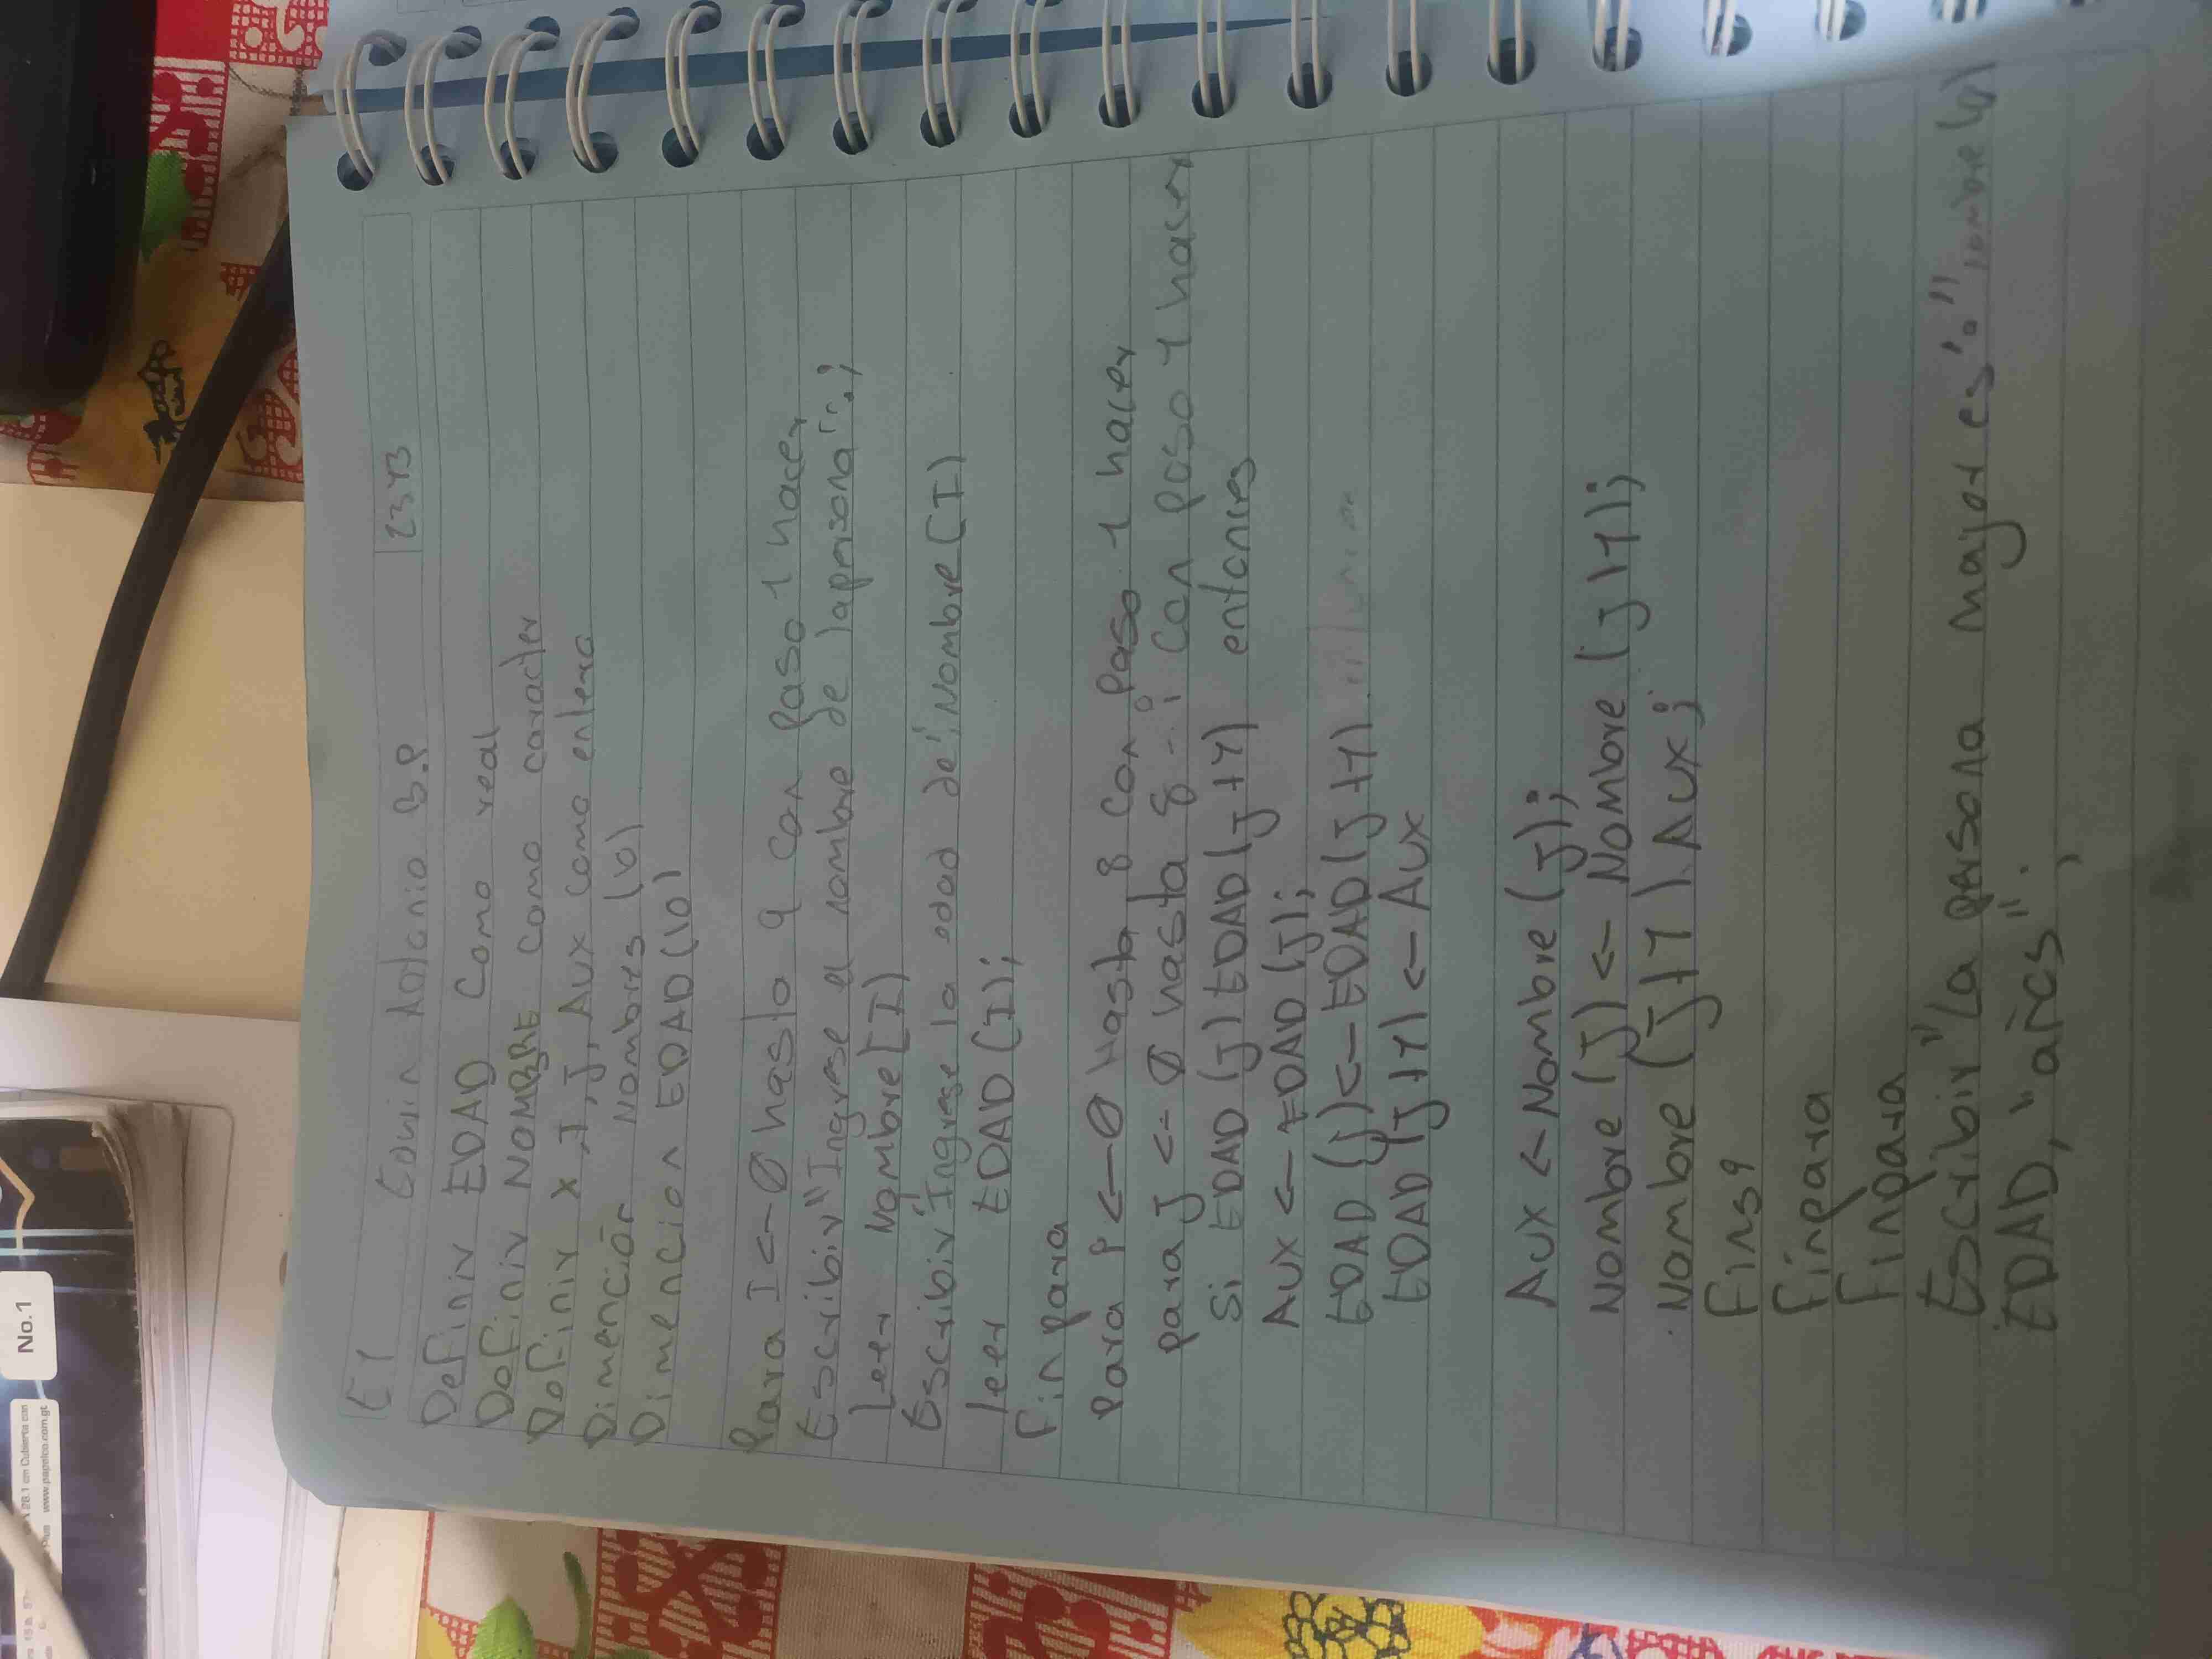 Definir EDAD Como real
Definir NOMBRE como caracter
Definir X, I, J, Aux como entero
Dimención Nombres (10)
Dimencion EDAD (10)
Para I <- 0 hasta 9 con paso 1 hacer
Escribir "Ingrese el nombre de
Leer Nombre [I]
Escribir "Ingrese la edad de", Nombre [I]
leer EDAD (I);
Finpara
Para <- 0 Hasta 8 con paso 1 hacer
para J <- 0 hasta 8 - i Con paso 1 hacer
Si EDAD (J) EDAD (J+1) entonces
Aux <- EDAD (J);
EDAD (J) <- EDAD (J+1)
EDAD (J+1) <- Aux
Aux <- Nombre (J);
Nombre (J) <- Nombre (J+1);
Nombre (J+1) Aux;
Finpara
Finpara
Escribir "La persona mayor es:"
EDAD, "años".
No.1
www.papelco.com.gt